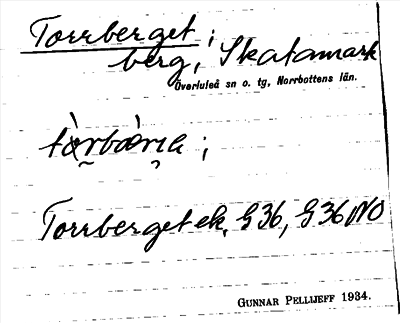 Torrberget;
berg, Skatamark
Överluleå sn o. tg, Norrbottens län.
Torrberget ek, G 36, G 36 NO
GUNNAR PELLIJEFF 1934.